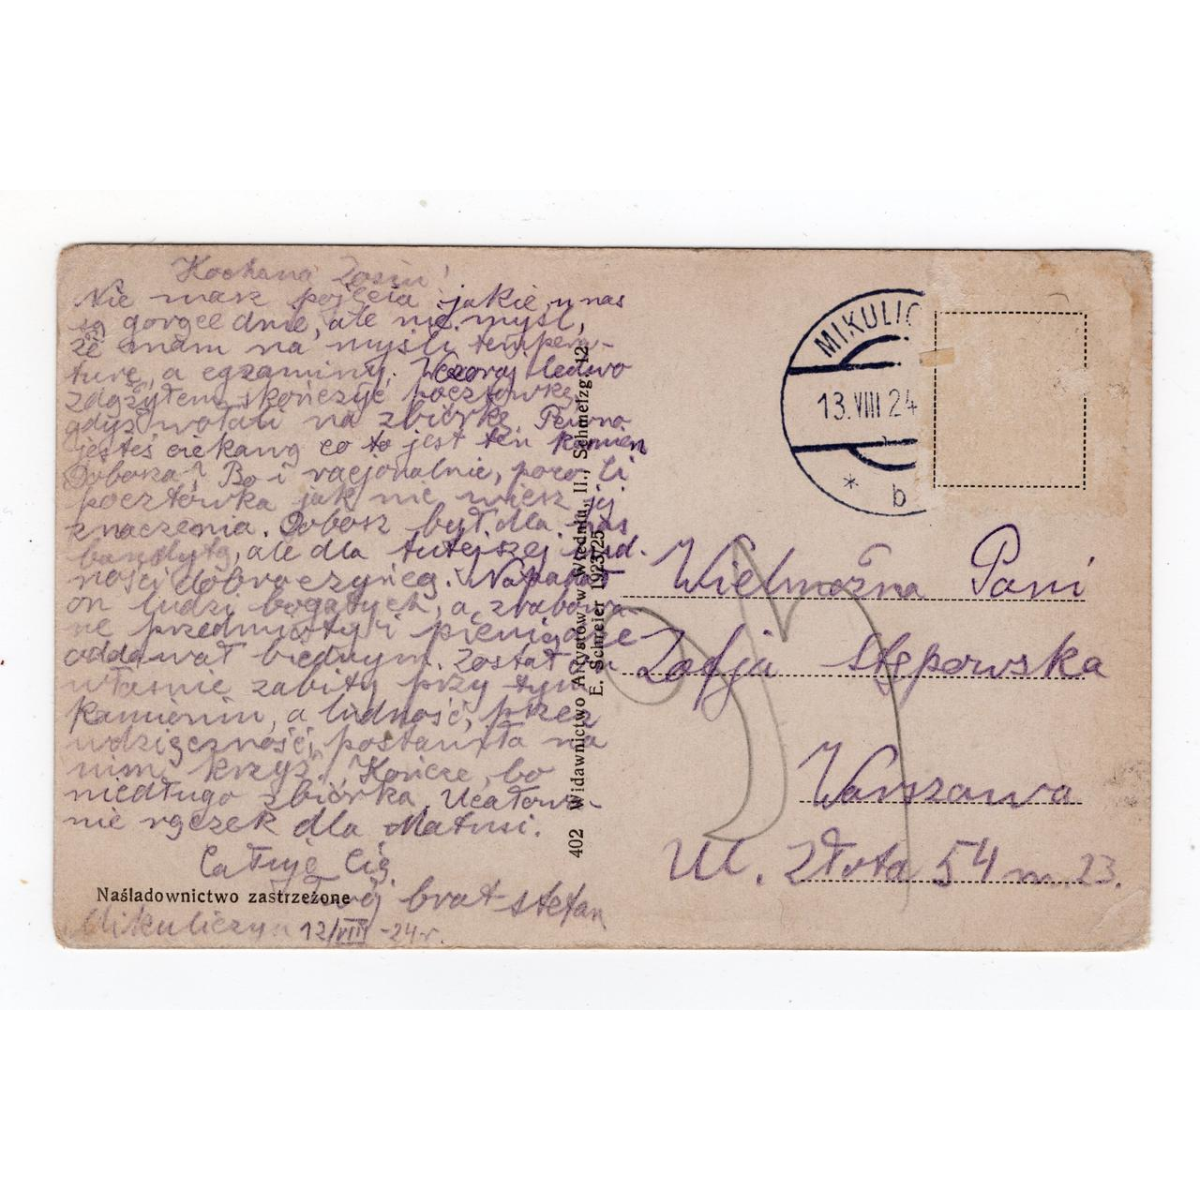 Kochana Zosiu!
Nie masz pojęcia jakie u nas
są gorące dnie, ale nie myśl,
że mam na myśli tempera-
turę, a egzaminy. Wczoraj ledwo
zdążyłem skończyć pocztówkę
gdyż wołali na zbiórkę. Pewno
jesteś ciekawą co to jest ten kamień
Dobosza? Bo i racjonalnie, poco Ci
pocztówka jak nie wiesz jej
znaczenia. Dobosz był dla nas
bandytą, ale dla tutejszej lud.
ności dobroczyńcą. Napadał
on ludzi bogatych, a zrabowa
ne przedmioty i pieniądze
oddawał biednym. Został on
właśnie zabity przy tym
kamieniu, a ludność, przez
wdzięczność, postawiła na
nim krzyż. Kończę, bo
niedługo zbiórka. Ucałowa-
nie rączek dla Matusi.
Całuję Cię
Twój brat Stefan
Mikuliczyn 12/VIII -24 r.
Naśladownictwo zastrzeżone
402 Widawnictwo Artystów w Wiedniu, II., Schmelzg. 12
E. Schreier 1923/25
MIKULIC
13.VIII 24
* b
Wielmożna Pani
Zofja Stępowska
Warszawa
Ul. Złota 54 m. 23.